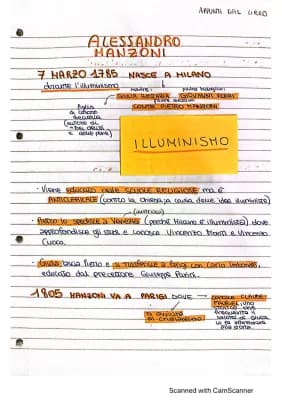 APPUNTI DAL LIBRO
ALESSANDRO
MANZONI
7 MARZO 1785 NASCE A MILANO
durante l'illuminismo
madre:
GIULIA BECCARIA
CONTE PIETRO MANZONI
figlia
di Cesare
Beccaria
(autore di
"Dei delitti
e delle pene)
ILLUMINISMO
• Viene educato nelle SCUOLE RELIGIOSE ma è
ANTICLERICALE (contro la chiesa, a causa delle idee illuministe)
• Pietro lo spedisce a Venezia (perché Milano è illuminista) dove
approfondisce gli studi e conosce Vincenzo Monti e Vincenzo
Cuoco.
• Giulia lascia Pietro e si trasferisce a Parigi con Carlo Imbonati,
educato dal precettore Giuseppe Parini.
1805 MANZONI VA A PARIGI DOVE
CLAUDE
FAURIEL, uno
storico che
frequenta il
salotto di Giulia
Scanned with CamScanner